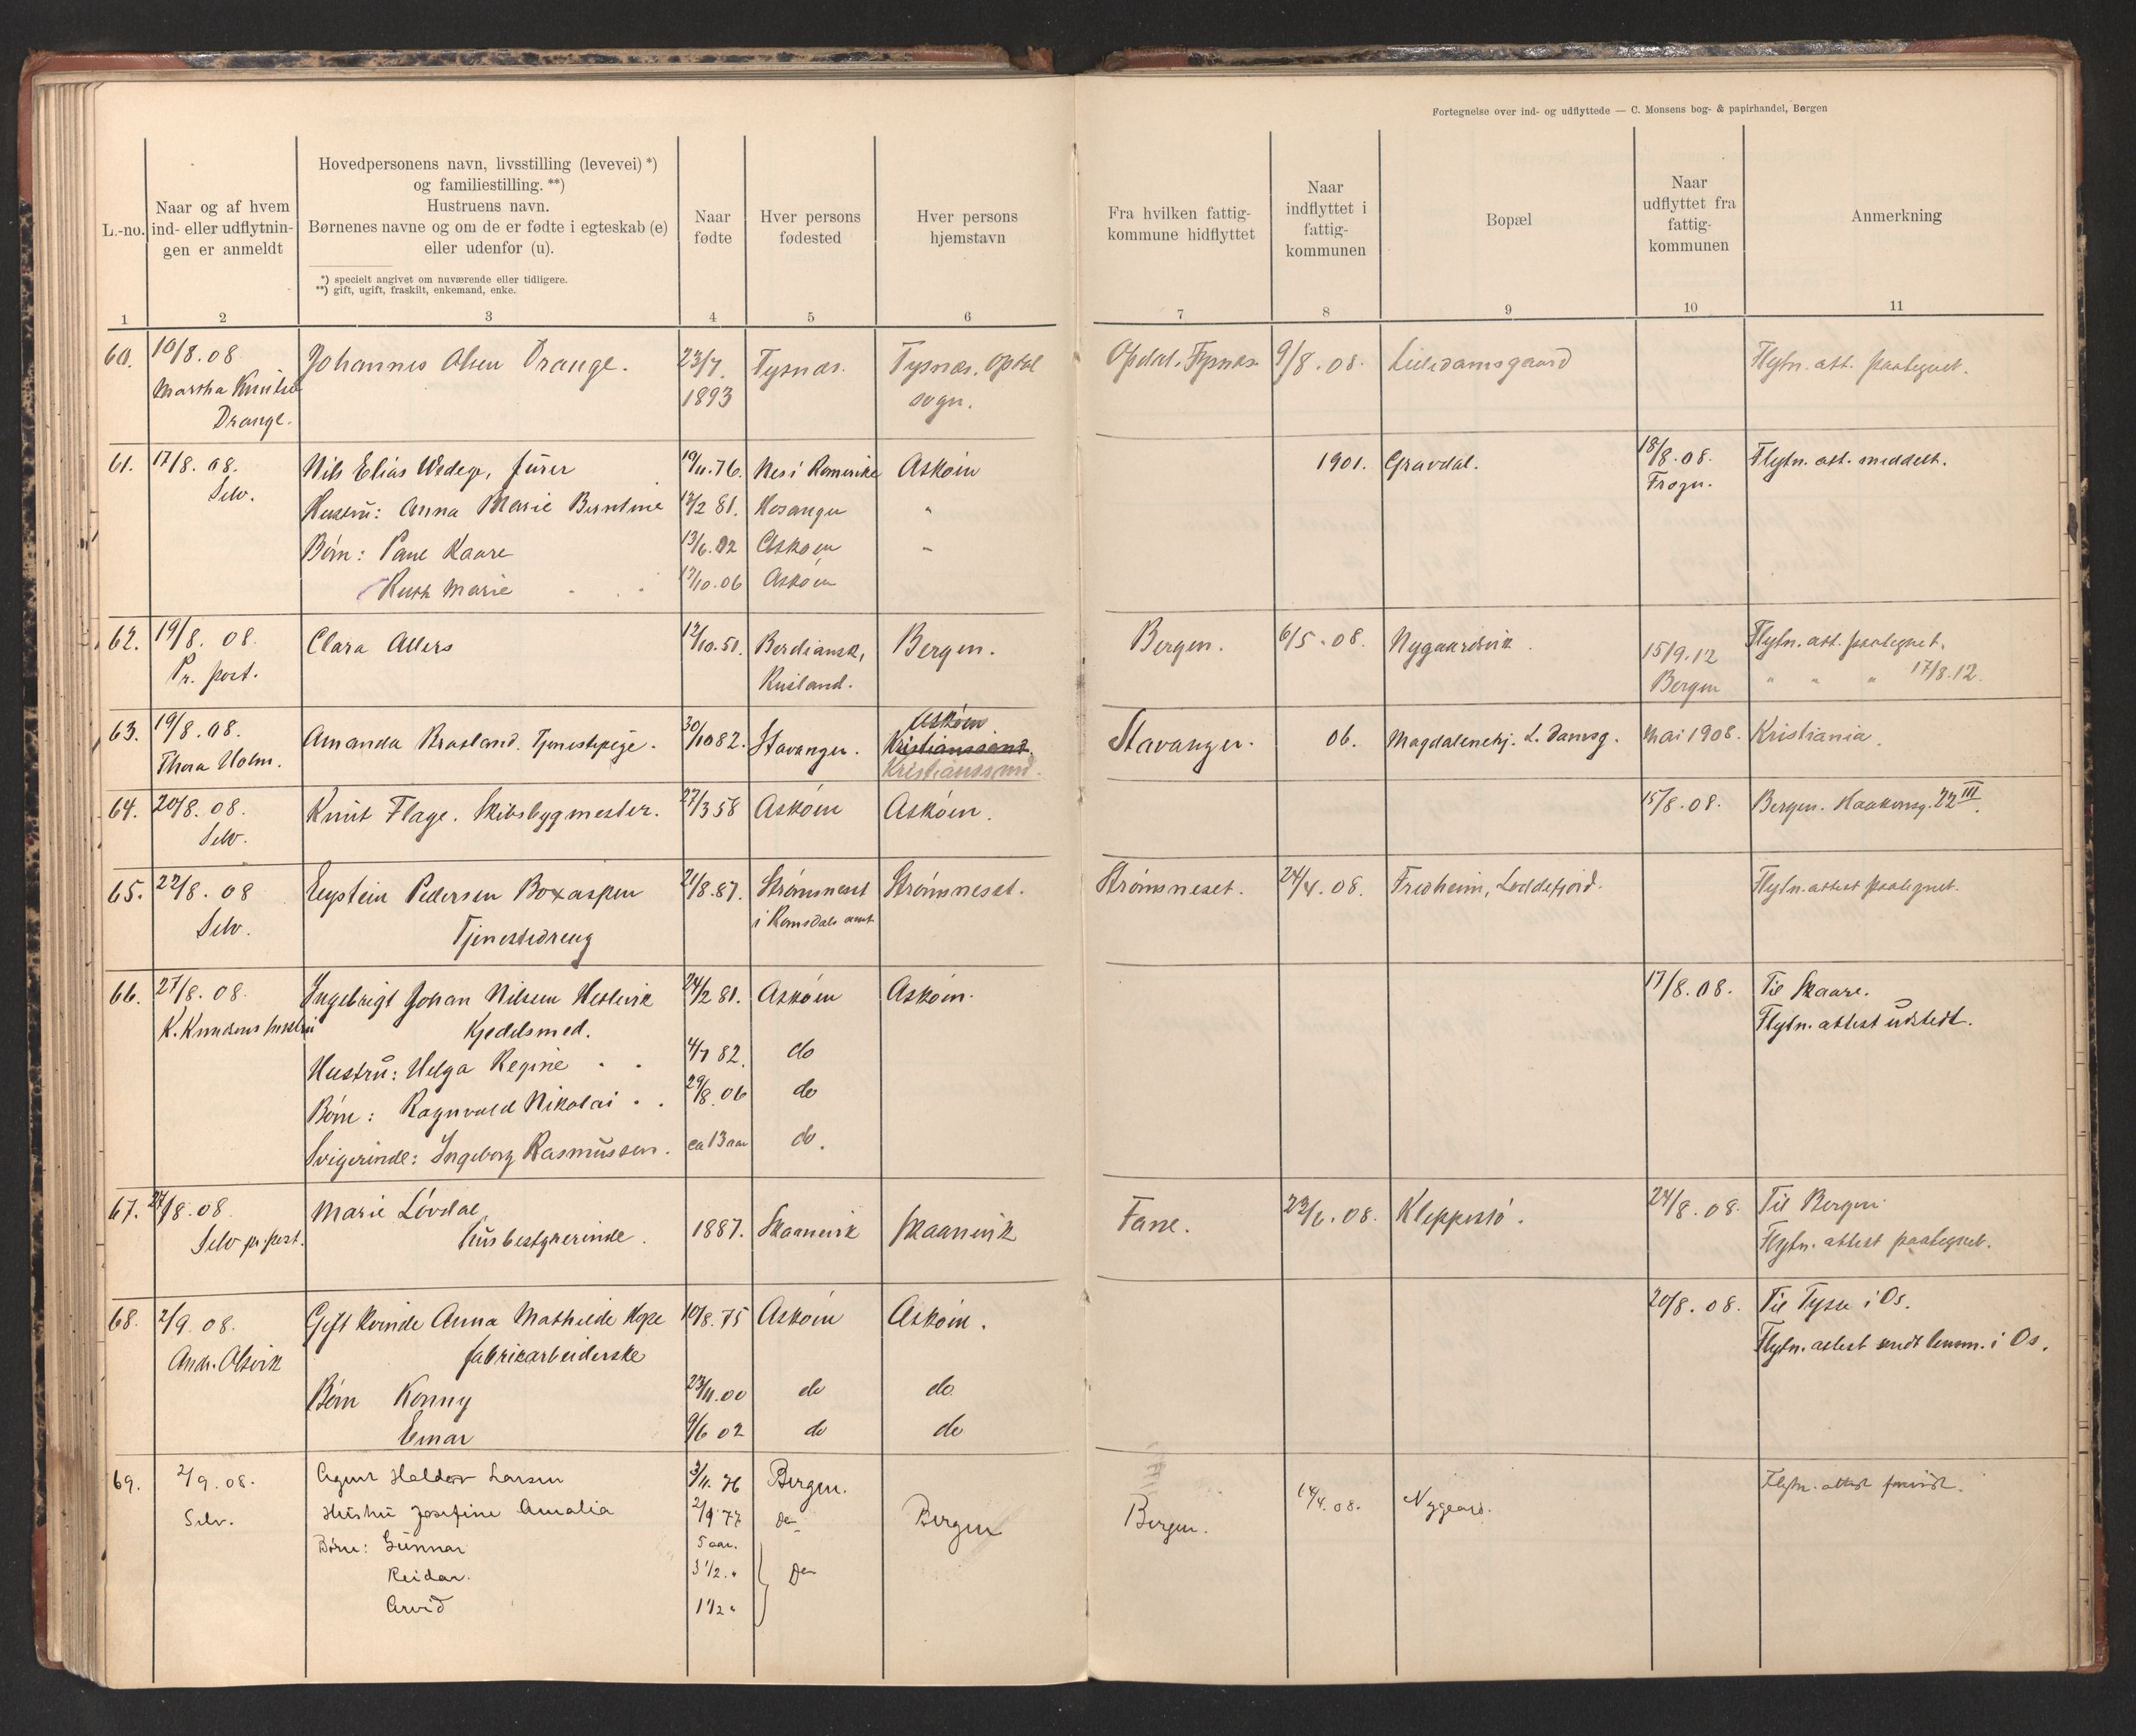 Fortegnelse over ind- og udflyttede — C. Monsens bog- & papirhandel, Bergen
L.-no.
Naar og af hvem
ind- eller udflytnin-
gen er anmeldt
Hovedpersonens navn, livsstilling (levevei) *)
og familiestilling. **)
Hustruens navn.
Børnenes navne og om de er fødte i egteskab (e)
eller udenfor (u).
*) specielt angivet om nuværende eller tidligere.
**) gift, ugift, fraskilt, enkemand, enke.
Naar
fødte
Hver persons
fødested
Hver persons
hjemstavn
Fra hvilken fattig-
kommune hidflyttet
Naar
indflyttet i
fattig-
kommunen
Bopæl
Naar
udflyttet fra
fattig-
kommunen
Anmerkning
1 2 3 4 5 6 7 8 9 10 11
60. 10/8.08 Johannes Olsen Drange. 23/7. Tysnæs. Tysnæs. Opdal Opdal. Tysnæs 9/8.08. Lilledamsgaard Flytn. att. paategnet.
Martha Knutsd. 1893 sogn.
Drange.
61. 17/8.08. Nils Elias Wedege, furer 19/11.76. Nes i Romerike Askøen 1901. Gravdal. 18/8.08. Flytn. att. meddelt.
Selv. Frogn.
Hustru: Anna Marie Berntine 12/2 81. Hosanger "
Børn: Paul Kaare 13/6.02 Askøen "
Ruth Marie 12/10.06 Askøen
62. 19/8.08. Clara Allers 12/10.51. Berdiansk, Bergen. Bergen. 6/5.08. Nygaardsvik. 15/9.12 Flytn. att. paategnet.
Pr. post. Rusland. Bergen " " " 17/8.12.
63. 19/8.08. Amanda Brasland. Tjenestepige. 30/10 82. Stavanger. Askøen Stavanger. 06. Magdalenehj. L. Damsg. Mai 1908. Kristiania.
Thora Holm. Kristianssand.
Kristianssund.
64. 20/8.08. Knut Flage. Skibsbygmester. 27/3 58 Askøen Askøen. 15/8.08. Bergen. Haakonsg. 22 III.
Selv.
65. 22/8.08 Eystein Pedersen Boxaspen 2/8.87. Strømsneset Strømsneset. Strømsneset. 24/4.08. Fredheim, Loddefjord. Flytn. attest paategnet.
Selv. Tjenestedreng i Romsdals amt
66. 27/8.08. Ingebrigt Johan Nilsen Hetlevik 24/2 81. Askøen Askøen. 17/8.08. Til Skaare.
K. Knudsens hustru Kjedelsmed. Flytn. attest udstedt.
Hustru: Helga Regine 4/7 82. do
Børn: Ragnvald Nikolai 29/8.06 do
Svigerinde: Ingeborg Rasmussen. ca 13 aar do.
67. 27/8.08 Marie Løvdal, 1887. Skaanevik Skaanevik Fane. 23/6.08. Kleppestø. 24/8.08. Til Bergen
Selv pr post. Husbestyrerinde. Flytn. attest paategnet.
68. 2/9.08. Gift kvinde Anna Mathilde Hope 10/8.75 Askøen Askøen. 20/8.08. Til Tysse i Os.
Andr. Alsvik fabrikarbeiderske Flytn. attest sendt lensm. i Os.
Børn Konny 23/11.00 do do
Einar 9/6 02 do do
69. 2/9.08. Agent Haldor Larsen 3/11.76 Bergen. Bergen Bergen. 14/4.08. Nygaard. Flytn. attest
Selv. Hustru Josefine Amalia 2/9 77 Do
Børn: Gunnar 5 aar.
Reidar. 3 1/2 " Do
Arvid 1 1/2 "